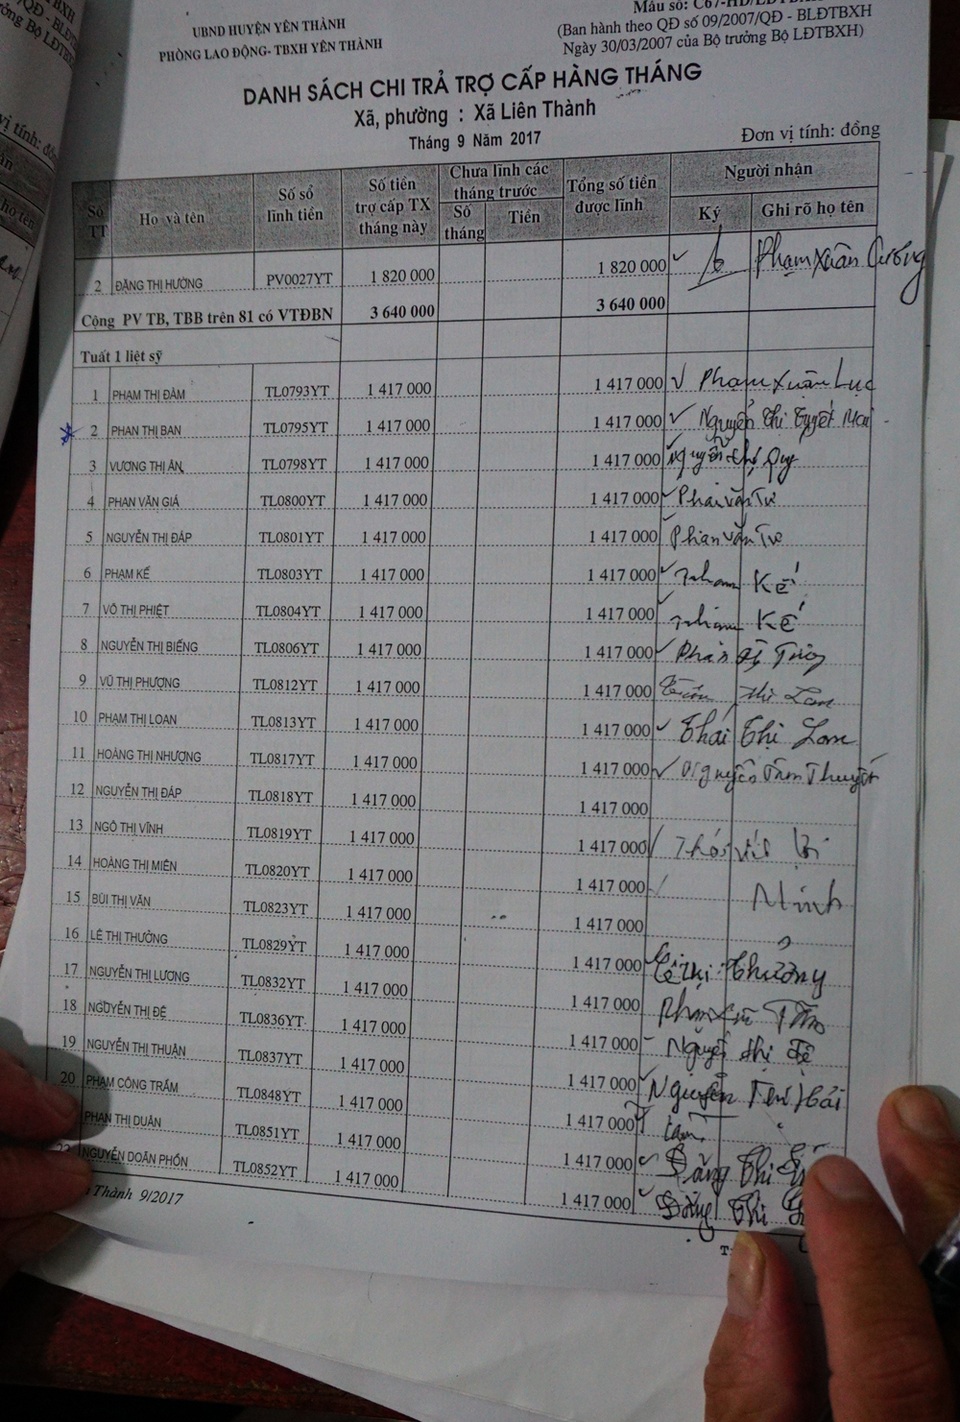 UBND HUYỆN YÊN THÀNH
PHÒNG LAO ĐỘNG- TBXH YÊN THÀNH
Mẫu số: C67-HD/LĐTBXH
(Ban hành theo QĐ số 09/2007/QĐ - BLĐTBXH
Ngày 30/03/2007 của Bộ trưởng Bộ LĐTBXH)
DANH SÁCH CHI TRẢ TRỢ CẤP HÀNG THÁNG
Xã, phường : Xã Liên Thành
Tháng 9 Năm 2017
Đơn vị tính: đồng
Số TT Họ và tên Số sổ lĩnh tiền Số tiền trợ cấp TX tháng này Chưa lĩnh các tháng trước Số tháng Tiền Tổng số tiền được lĩnh Người nhận Ký Ghi rõ họ tên
2 ĐẶNG THỊ HƯỜNG PV0027YT 1 820 000 1 820 000 Phạm Xuân Cương
Cộng PV TB, TBB trên 81 có VTĐBN 3 640 000 3 640 000
Tuất 1 liệt sỹ
1 PHẠM THỊ ĐÀM TL0793YT 1 417 000 1 417 000 Phạm Xuân Lục
2 PHAN THỊ BAN TL0795YT 1 417 000 1 417 000 Nguyễn Thị Tuyết Mai
3 VƯƠNG THỊ ÂN TL0798YT 1 417 000 1 417 000 Nguyễn Quy
4 PHAN VĂN GIÁ TL0800YT 1 417 000 1 417 000 Phan văn Tư
5 NGUYỄN THỊ ĐÁP TL0801YT 1 417 000 1 417 000 Phan văn Tư
6 PHẠM KẾ TL0803YT 1 417 000 1 417 000 Phạm Kế
7 VÕ THỊ PHIỆT TL0804YT 1 417 000 1 417 000 Phạm Kế
8 NGUYỄN THỊ BIẾNG TL0806YT 1 417 000 1 417 000 Phan
9 VŨ THỊ PHƯỢNG TL0812YT 1 417 000 1 417 000 Thị Loan
10 PHẠM THỊ LOAN TL0813YT 1 417 000 1 417 000 Thái Thị Loan
11 HOÀNG THỊ NHƯỢNG TL0817YT 1 417 000 1 417 000 Nguyễn Tâm Thuyết
12 NGUYỄN THỊ ĐÁP TL0818YT 1 417 000 1 417 000
13 NGÔ THỊ VĨNH TL0819YT 1 417 000 1 417 000 Thái
14 HOÀNG THỊ MIÊN TL0820YT 1 417 000 1 417 000 Minh
15 BÙI THỊ VĂN TL0823YT 1 417 000 1 417 000
16 LÊ THỊ THƯỞNG TL0829YT 1 417 000 1 417 000 Lê Thị Thưởng
17 NGUYỄN THỊ LƯƠNG TL0832YT 1 417 000 1 417 000
18 NGUYỄN THỊ ĐỆ TL0836YT 1 417 000 1 417 000 Nguyễn thị đệ
19 NGUYỄN THỊ THUẬN TL0837YT 1 417 000 1 417 000 Nguyễn Thị Hải
20 PHẠM CÔNG TRẤM TL0848YT 1 417 000 1 417 000
PHAN THỊ DUÂN TL0851YT 1 417 000 1 417 000 Đặng Thị
NGUYỄN DOÃN PHÓN TL0852YT 1 417 000 1 417 000 Thị
Thành 9/2017